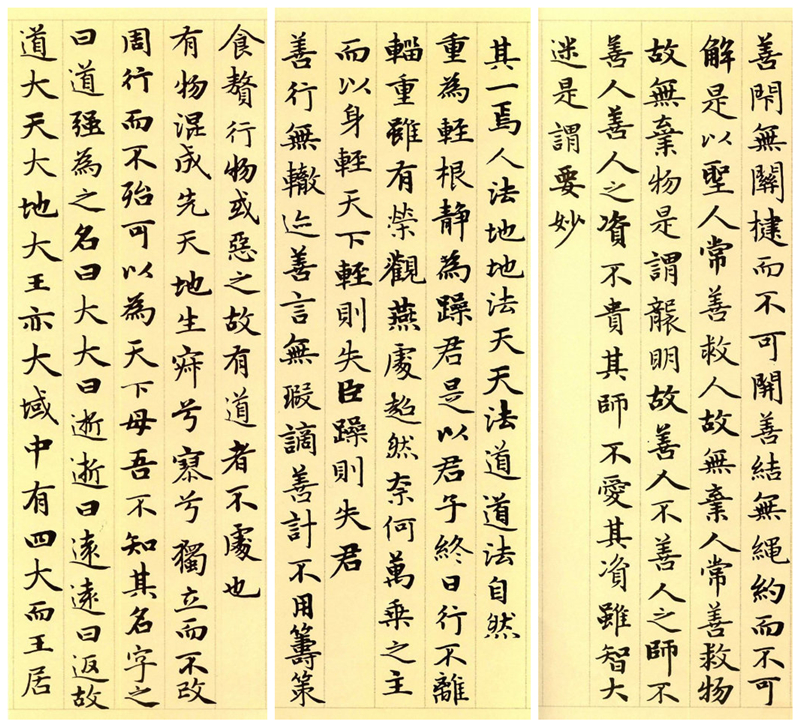 食贅行物或惡之故有道者不處也
有物混成先天地生寂兮寥兮獨立而不改
周行而不殆可以為天下母吾不知其名字之
曰道强為之名曰大大曰逝逝曰遠遠曰返故
道大天大地大王亦大域中有四大而王居
其一焉人法地地法天天法道道法自然
重為輕根靜為躁君是以君子終日行不離
輜重雖有榮觀燕處超然奈何萬乘之主
而以身輕天下輕則失臣躁則失君
善行無轍迹善言無瑕謫善計不用籌策
善閇無關楗而不可開善結無繩約而不可
解是以聖人常善救人故無棄人常善救物
故無棄物是謂襲明故善人不善人之師不
善人善人之資不貴其師不愛其資雖智大
迷是謂要妙